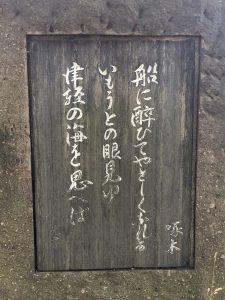 船に醉ひてやさしくなれる
いもうとの眼見ゆ
津軽の海を思へば
啄木